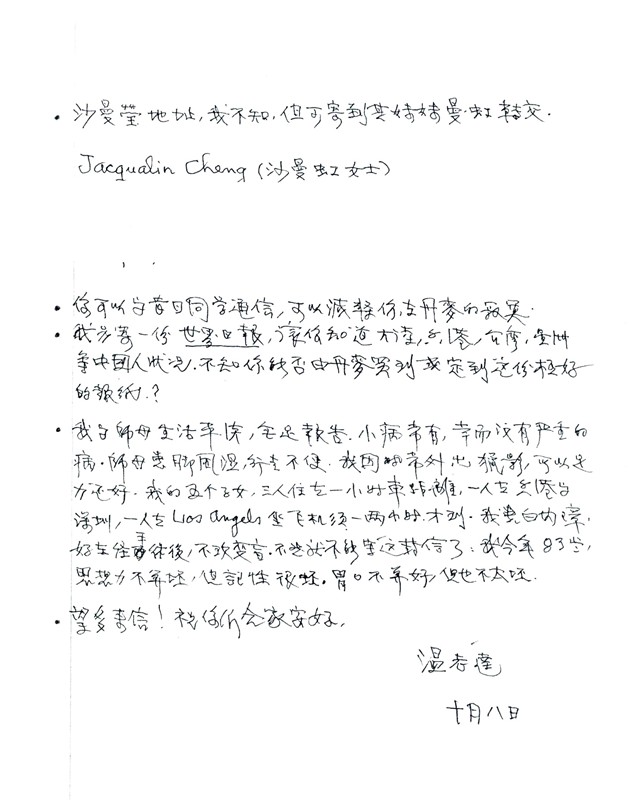 • 沙曼莹地址,我不知,但可寄到其妹妹曼虹轉交.
Jacqualin Cheng (沙曼虹女士)
• 你可以与昔日同学通信,可以減輕你在丹麥的寂寞.
• 我另寄一份世界日報,讓你知道大陸,台灣,
等中國人狀况.不知你能否由丹麥買到或定到这份極好
的報紙.?
• 我与師母生活平保,乏足報告.小病常有,幸而没有严重的
病.師母患脚風濕,行走不便.我因時常外出攝影,可以走
力还好.我的五个子女,三人住在一小时車路離,一人在香港与
深圳,一人在Los Angels坐飞机须一两小时才到.我患白内障,
好在经手術後,不致变盲.不然就不能写这封信了.我今年83岁,
思想力不算坏,但記性很坏.胃口不算好但也不太坏.
• 望多来信!祝你们全家安好.
温
十月八日